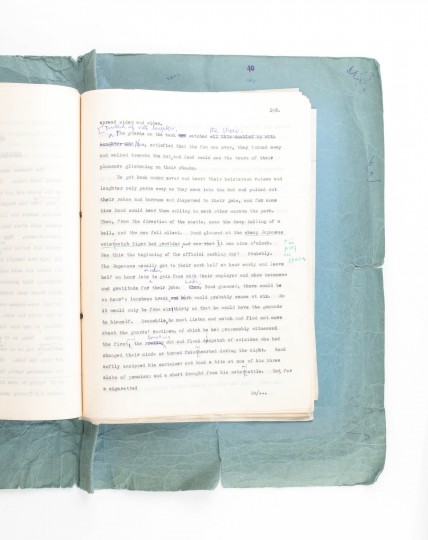 40
248.
spread sides and sides.
The guards on the tank watched all this
satisfied that the fun was over, they turned away
and walked towards the hut, and Bond could see the tears of their
pleasures glistening on their cheeks.
To get Bond under cover and heard their boisterous voices and
laughter only yards away as they came into the hut and pulled out
their rakes and barrows and dispersed to their jobs, and for some
time Bond could hear them calling to each other across the park.
Then, from the direction of the castle, came the deep tolling of a
bell, and the men fell silent. Bond glanced at the cheap Japanese
wristwatch Tiger had provided it was nine o'clock.
Was this the beginning of the official working day? Probably.
The Japanese usually get to their work half an hour early and leave
half an hour late to gain face with their employer and show keenness
and gratitude for their jobs. Bond guessed, there would be
an hour's luncheon break would probably cease at six. So
it would only be from six thirty on that he would have the grounds
to himself. Meanwhile, he must listen and watch and find out more
about the guards' routines, of which he had presumably witnessed
the first, the smelling out and final despatch of suicides who had
changed their minds or turned faint hearted during the night. Bond
softly unzipped his container and took a bite at one of his three
slabs of pemmican and a short draught from his water bottle. God, for
a cigarette!